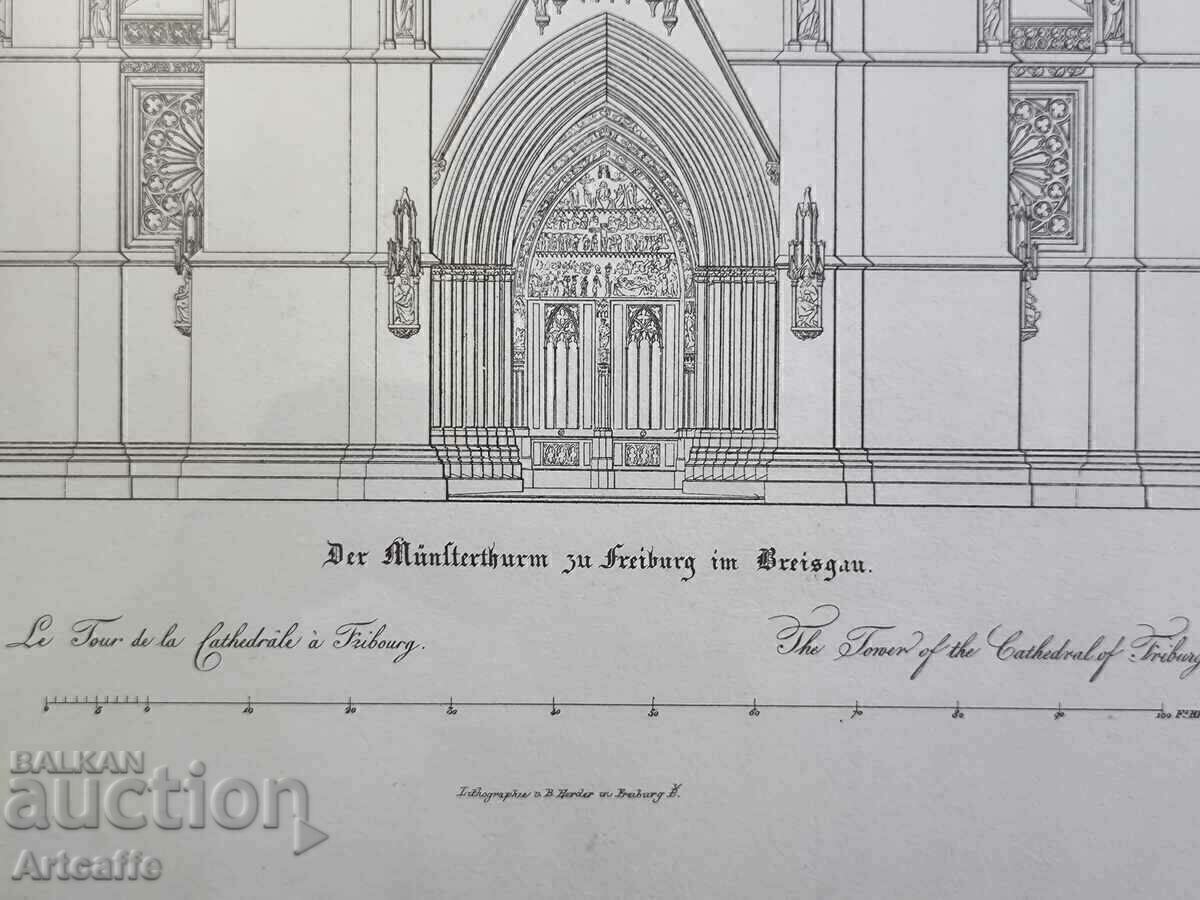 Der Münsterthurm zu Freiburg im Breisgau.
Le Tour de la Cathedrâle à Fribourg.
The Tower of the Cathedral of Friburg
5 0 10 20 30 40 50 60 70 80 90 100
Lithographie v. B. Herder in Freiburg
BALKAN
auction
Artcaffe